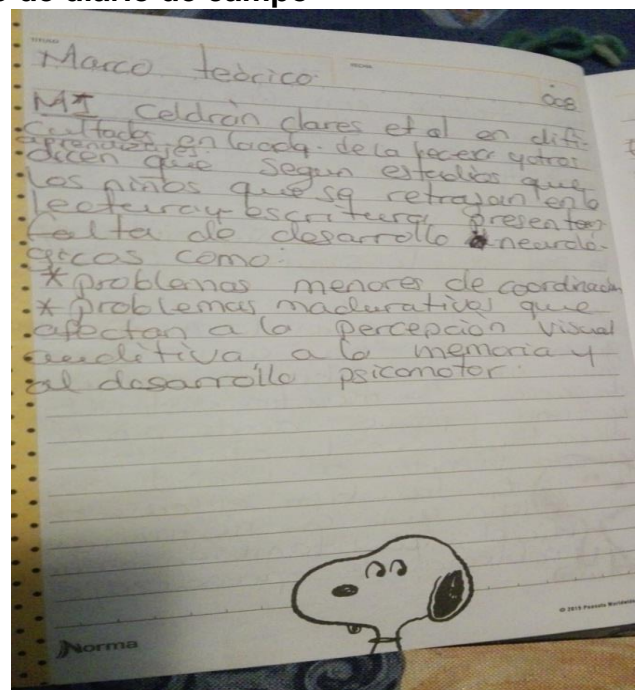 de diario de campo
TITULO
FECHA
Marco teórico.
008
MI Celdrán clares et al en difi-
cultades en la adq. de la lecescr y otros
aprendizajes.
dicen que segun estudios que
los niños que se retrajan en la
lectura y escritura presentan
falta de desarrollo neuroló-
gicos como:
* problemas menores de coordinación
* problemas madurativos que
afectan a la percepción visual
auditiva a la memoria y
al desarrollo psicomotor.
© 2015 Peanuts Worldwide
Norma